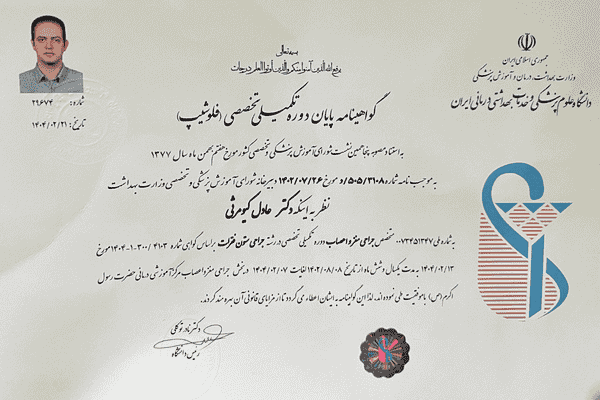 بسمه تعالی
یرفع الله الذین آمنوا منکم والذین أوتوا العلم درجات
جمهوری اسلامی ایران
وزارت بهداشت، درمان و آموزش پزشکی
دانشگاه علوم پزشکی و خدمات بهداشتی درمانی ایران
شماره: ۲۹۶۷۴
تاریخ: ۱۴۰۴/۰۲/۲۱
گواهینامه پایان دوره تکمیلی تخصصی (فلوشیپ)
به استناد مصوبه پنجاهمین نشست شورای آموزش پزشکی و تخصصی کشور مورخ هفتم بهمن ماه سال ۱۳۷۷
به موجب نامه شماره ۵۰۵/۳۱۰۸/د مورخ ۱۴۰۲/۰۷/۲۶ دبیرخانه شورای آموزش پزشکی و تخصصی وزارت بهداشت
نظر به اینکه دکتر عادل کیومرثی
به شماره ملی ۰۰۷۳۴۵۱۳۴۷ متخصص جراحی مغز و اعصاب دوره تکمیلی تخصصی در رشته جراحی ستون فقرات براساس گواهی شماره ۱۴۰۴-۱-۳۰۰/۴۱۰۳ مورخ
۱۴۰۴/۰۲/۱۳ به مدت یکسال و شش ماه از تاریخ ۱۴۰۲/۰۸/۰۸ لغایت ۱۴۰۴/۰۲/۰۷ در بخش جراحی مغز و اعصاب مرکز آموزشی درمانی حضرت رسول
اکرم (ص) با موفقیت طی نموده اند. لذا این گواهینامه به ایشان اعطاء می گردد تا از مزایای قانونی آن بهره مند گردند.
دکتر نادر توکلی
رئیس دانشگاه